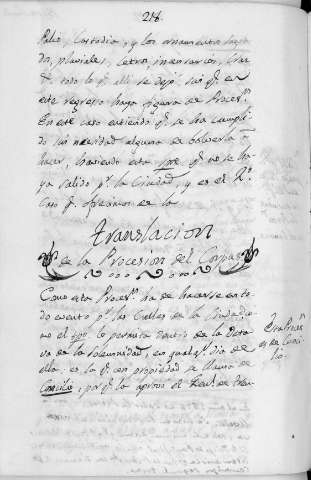 218.
Palio, Custodia, y los ornamentos sagra-
dos, pluviales, cetros, incensarios, cruz
de todo lo q.e alli se dejó, sin q.e en
este regresso haya figura de Proces.n
En este caso entiendo q.e se ha cumpli-
do sin necesidad alguna de bolverla a
hacer, haviendo esta, spre q.e no se ha-
ya salido p.r la Ciudad, y es el R.o
Caso q.e ofrecimos de la
Translacion
de la Procesion del Corpus
Como esta Proces.n ha de hacerse en to-
do evento p.r las Calles de la Ciudad co-
mo el tpo lo permita dentro de la Octa-
va de la solemnidad, en qualq.r dia de
ella: es la q.e en propiedad se llama de
Concilio, por q.e la aprovó el
Esta Proces.n
es de Conci-
lio.